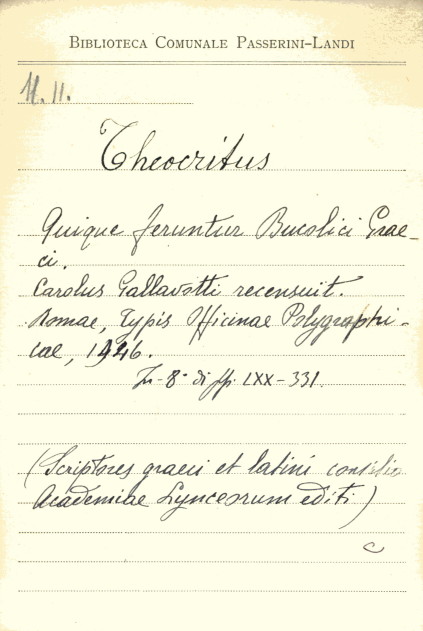 BIBLIOTECA COMUNALE PASSERINI-LANDI
M. 11.
Theocritus
Quique feruntur Bucolici Grae-
ci.
Carolus Gallavotti recensuit.
Romae, Typis Officinae Polygraphi-
cae, 1946.
In-8° di pp. LXX-331.
(Scriptores graeci et latini consilio
Academiae Lynceorum editi)
C